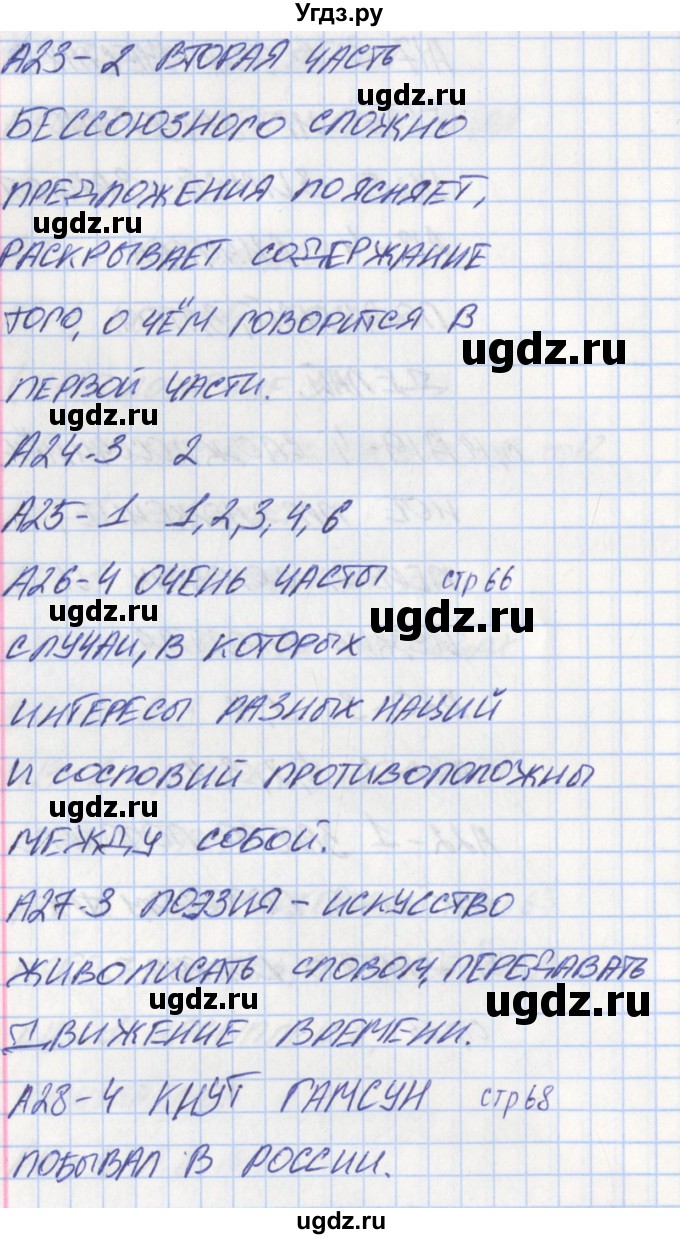 Угдз.ру
А23-2 ВТОРАЯ ЧАСТЬ
ugdz.ru
БЕССОЮЗНОГО СЛОЖНО
ПРЕДЛОЖЕНИЯ ПОЯСНЯЕТ,
ugdz.ru
РАСКРЫВАЕТ СОДЕРЖАНИЕ
ТОГО, О ЧЁМ ГОВОРИТСЯ В
ugdz.ru
ПЕРВОЙ ЧАСТИ.
ugdz.ru
А24-3 2
А25-1 1,2,3,4,6
А26-4 ОЧЕНЬ ЧАСТЫ стр 66
ugdz.ru ugdz.ru
СЛУЧАИ, В КОТОРЫХ
ИНТЕРЕСЫ РАЗНЫХ НАЦИЙ
И СОСЛОВИЙ ПРОТИВОПОЛОЖНЫ
ugdz.ru
МЕЖДУ СОБОЙ.
А27-3 ПОЭЗИЯ - ИСКУССТВО
ЖИВОПИСАТЬ СЛОВОМ, ПЕРЕДАВАТЬ
ugdz.ru ugdz.ru
ДВИЖЕНИЕ ВРЕМЕНИ.
А28-4 КНУТ ГАМСУН стр 68
ПОБЫВАЛ В РОССИИ.
ugdz.ru